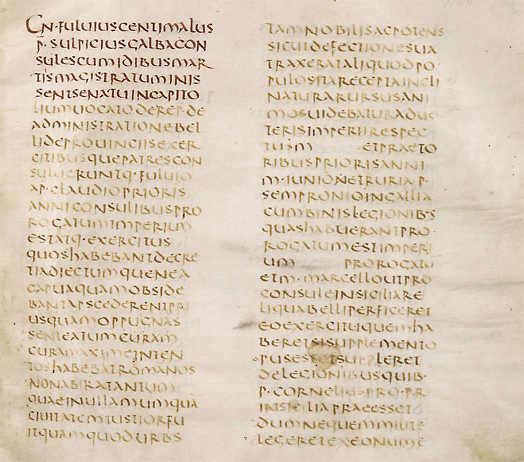 CN·FULUIUSCENTIMALUS
P·SULPICIUSGALBACON
SULESCUMIDIBUSMAR
TISMAGISTRATUMINIS
SENTSENATUINCAPITO
LIUMUOCATODEREP·DE
ADMINISTRATIONEBEL
LIDEPROUINCIISEXER
CITIBUSQUEPATRESCON
SULUERUNTQ·FULUIO
AP·CLAUDIOPRIORIS
ANNICONSULIBUSPRO
ROGATUMIMPERIUM
ESTATQ·EXERCITUS
QUOSHABEBANTDECRE
TIADIECTUMQUENEA
CAPUAQUAMOBSIDE
BANTAPSCEDERENTPRI
USQUAMOPPUGNAS
SENTEATUMCURAM
CURAMAXIMEINTEN
TOSHABEBATROMANOS
NONABIRATANTUM
QUAEINULLAMUMQUA
CIUITATEMIUSTIORFU
ITQUAMQUODURBS
TAMNOBILISACPOTENS
SICUTDEFECTIONESUA
TRAXERATALIQUODPO
PULOSITARECEPTAINCLI
NATURARURSUSANI
MOSUIDEBATURADUE
TERISIMPERIIRESPEC
TUM ETPRAETO
RIBUSPRIORISANNI
M·IUNIOINETRURIAP·
SEMPRONIOINGALLIA
CUMBINISLEGIONIB·S
QUASHABUERANTPRO·
ROGATUMESTIMPERI
UM PROROGATU
ETM·MARCELLOUTPRO
CONSULEINSICILIARE
LIQUABELLIPERFICERET
EOEXERCITUQUEMHA
BERETSISUPPLEMENTO
OPUSESSETSUPPLERET
DELEGIONIBUSQUIB·
P·CORNELIUSPRO·PR
INSICILIAPRAEESSET
DUMNEQUEMMILITE
LEGERETEXEONUME